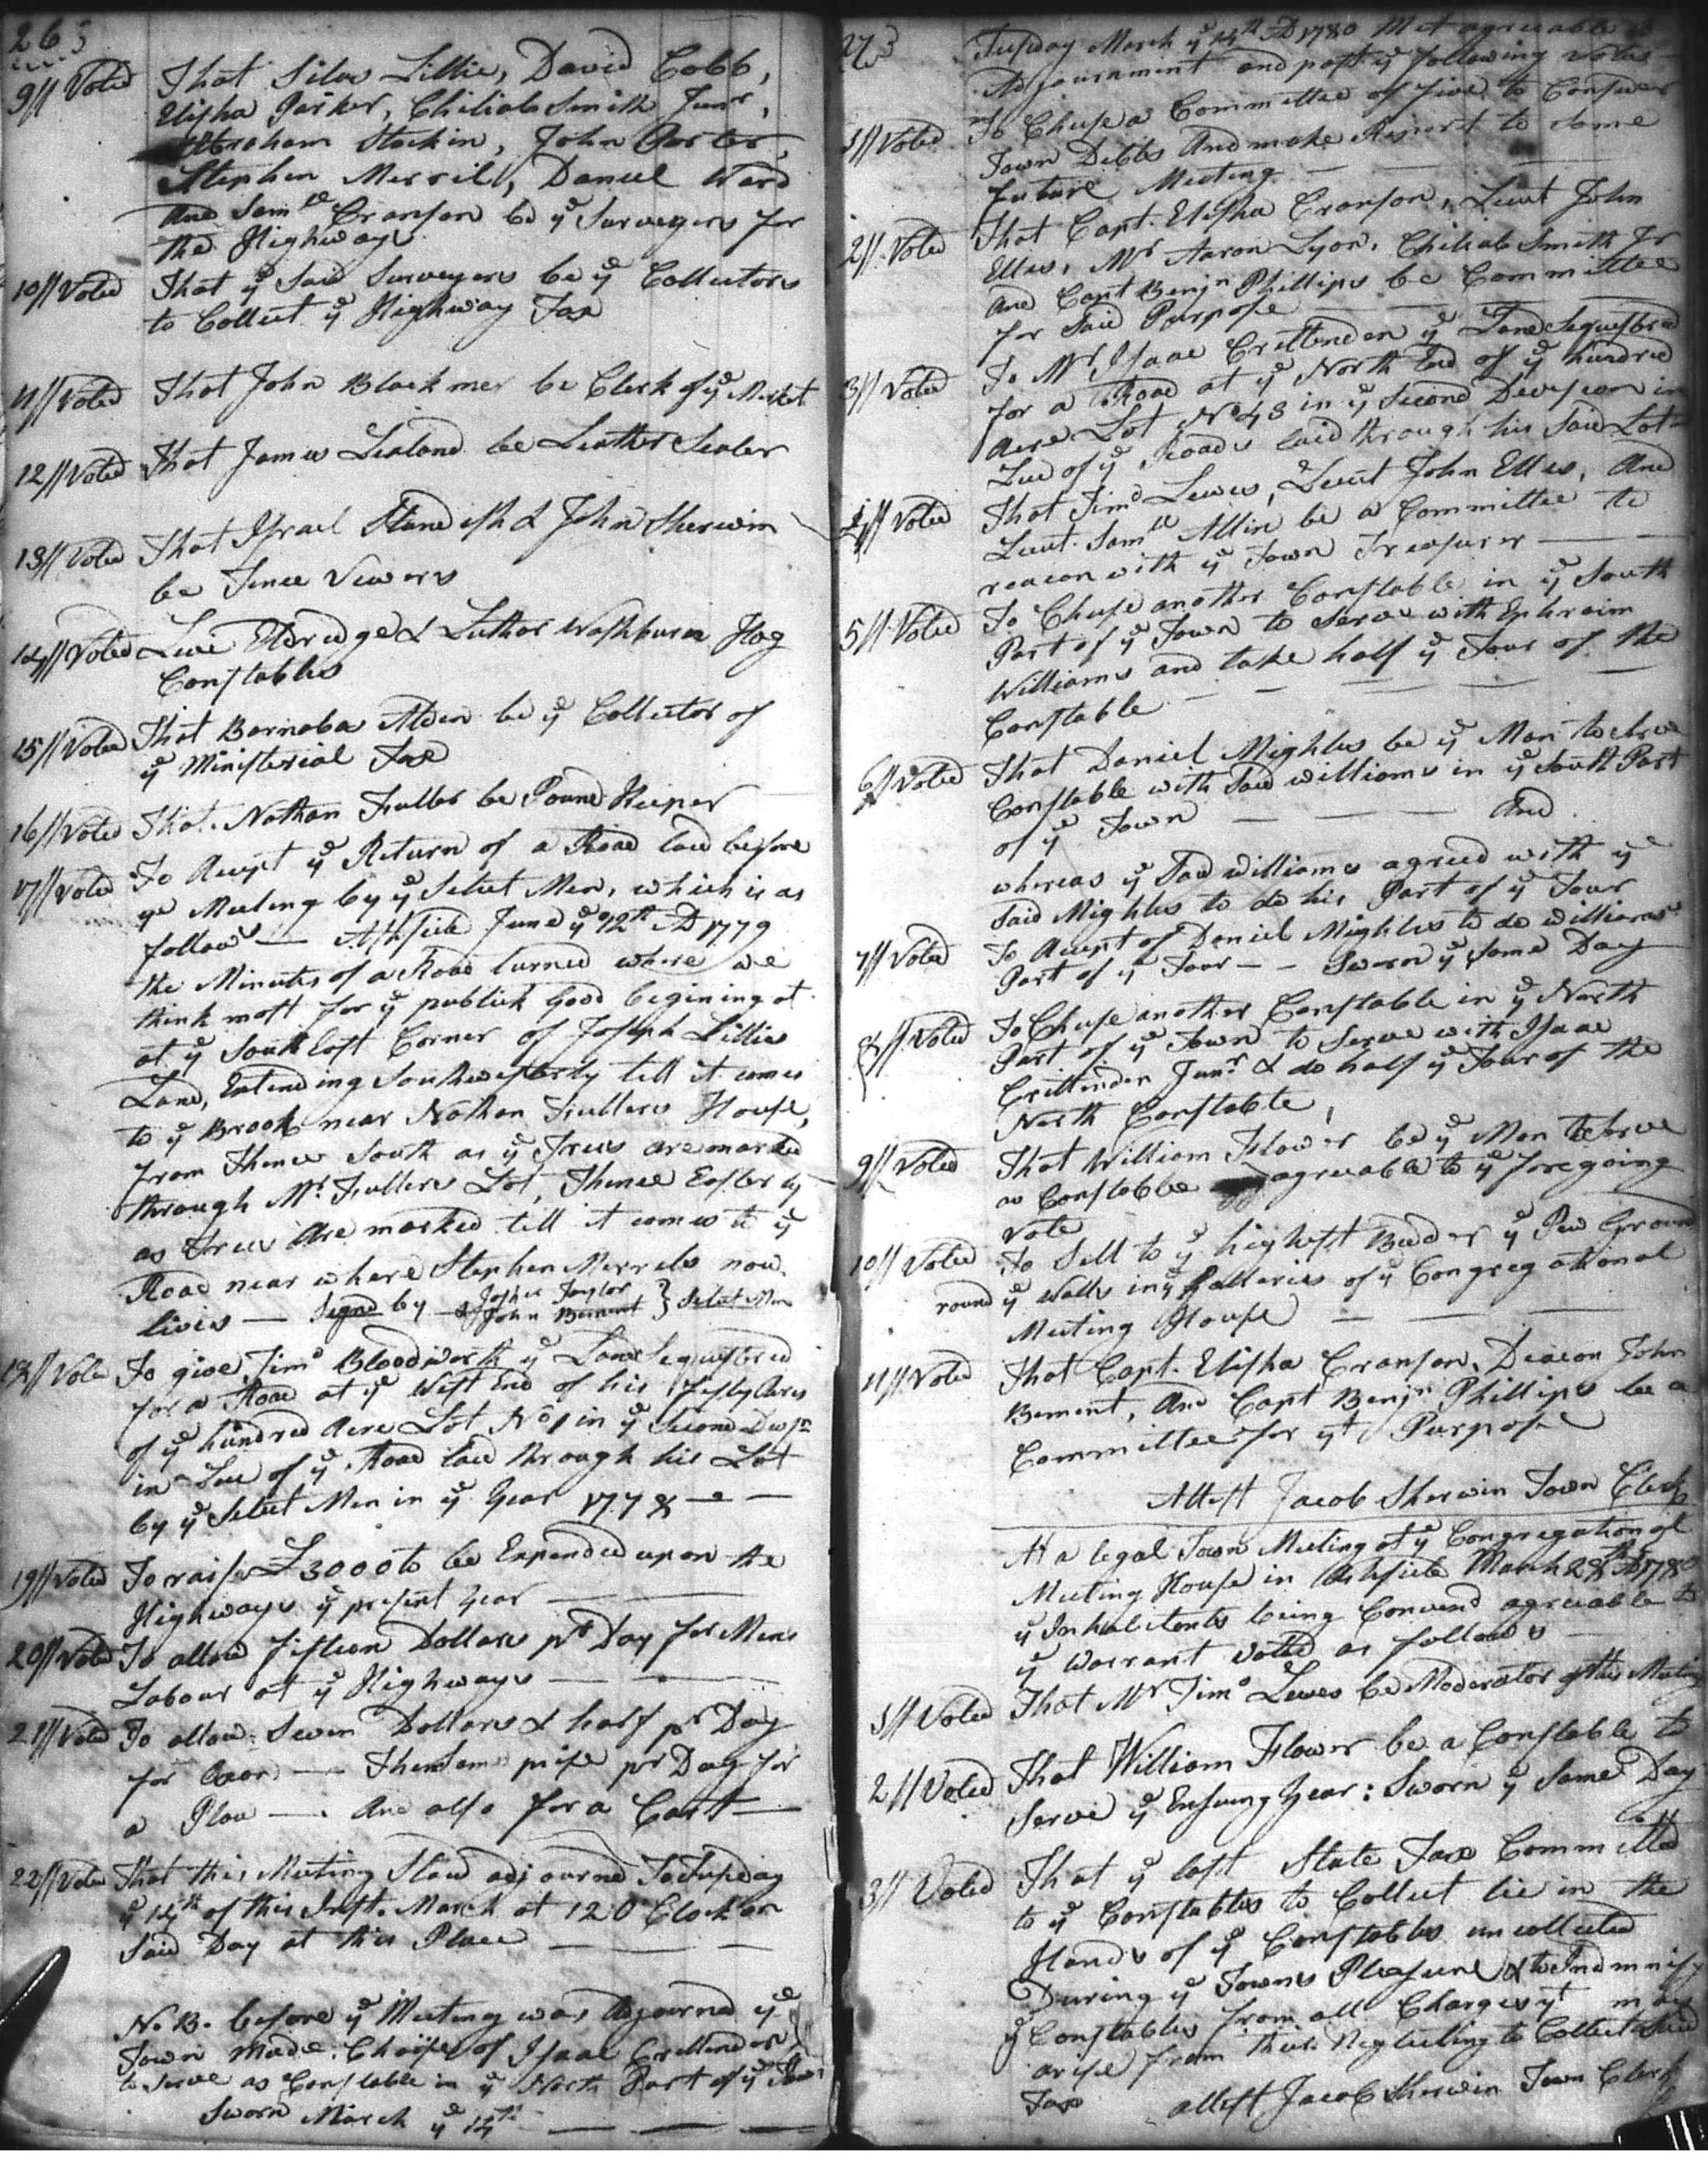 263
9// Voted That Silas Lillie, David Cobb,
Elisha Parker, Chiliab Smith Junr,
Abraham Stockin, John Porter,
Stephen Merril, Daniel Ward
And Samll Cranson be ye Surveyors for
the Highways
10// Voted That ye Said Surveyors be ye Collectors
to Collect ye Highway Tax
11// Voted That John Blackmer be Clerk of ye Market
12// Voted That James Lealand be Leather Sealer
13// Voted That Israel Standish & John Sherwin
be Fence Vewers
14// Voted Levi Eldredge & Luther Washburn Hog
Constables
15// Voted That Barnaba Alden be ye Collector of
ye Ministerial Tax
16// Voted That Nathan Fuller be Pound Keeper
17// Voted To Accept ye Return of a Road laid before
ye Meeting by ye Select Men, which is as
follows — Ashfield June ye 12th AD 1779
the Minutes of a Road turned where we
think most for ye publick Good begining at
at ye South East Corner of Joseph Lillies
Land, Extending Southwesterly till it comes
to ye Brook near Nathan Fullers House,
from Thence South as ye Trees are marked
through Mr. Fullers Lot, Thence Easterly
as Trees Are marked till it comes to ye
Road near where Stephen Merrels now
lives — Signd by Jasher Taylor
& John Bement } Select Men
18// Voted To give Timo Bloodworth ye Land Sequestred
for a Road at ye West End of his Fifty Acres
of ye hundred Acre Lot No 1 in ye Second Divsn
in Lue of ye Road laid through his Lot
by ye Select Men in ye Year 1778 — —
19// Voted To raise £3000 to be Expended upon the
Highways ye present Year —
20// Voted To allow fifteen Dollars pr Day for Mens
Labour at ye Highways — —
21// Voted To allow Seven Dollars & half pr Day
for Oxen — The Same prise pr Day for
a Plow — And also for a Cart —
22// Voted That this Meeting Stand adjourned To Tusday
ye 14th of this Inst. March at 12 O Clock on
Said Day at this Place — — —
N. B. before ye Meeting was Adjourned ye
Town Made Choise of Isaac Crittenden
to Serve as Constable in ye North Part of ye Town
Sworn March ye 14th — — —
273
Tusday March ye 14th AD 1780 Met agreeable to
Adjournment and past ye following votes
1// Voted To Chuse a Committee of five to Consider
Town Debts And make Report to Some
future Meeting — —
2// Voted That Capt. Elisha Cranson, Lieut John
Elles, Mr Aaron Lyon, Chiliab Smith Jr
And Capt Benjn Phillips be Committee
for Said Purpose —
3// Voted To Mr Isaac Crittenden ye Land Sequestred
for a Road at ye North End of ye hundred
Acre Lot No 48 in ye Second Devision in
Lue of ye Roads laid through his Said Lot —
4// Voted That Timo Lewes, Lieut John Elles, And
Lieut. Samll Allin be a Committee to
reacon with ye Town Treasurer — —
5// Voted To Chuse another Constable in ye South
Part of ye Town to Serve with Ephraim
Williams and take half ye Tour of the
Constable — — — — —
6// Voted That Daniel Mighles be ye Man to Serve
Constable with Said Williams in ye South Part
of ye Town — — — And
whereas ye Said Williams agreed with ye
Said Mighles to do his Part of ye Tour
7// Voted To Accept of Daniel Mighles to do Williams
Part of ye Tour — — Sworn ye Same Day
8// Voted To Chuse another Constable in ye North
Part of ye Town to Serve with Isaac
Crittenden Junr & do half ye Tour of the
North Constable
9// Voted That William Flower be ye Man to Serve
as Constable agreeable to ye foregoing
Vote
10// Voted To Sell to ye highest Bidder ye Pew Ground
round ye Walls in ye Galleries of ye Congregational
Meeting House — —
11// Voted That Capt. Elisha Cranson, Deacon John
Bement, And Capt Benjn Phillips be a
Committee for yt Purpose
Attest Jacob Sherwin Town Clerk
At a legal Town Meeting at ye Congregational
Meeting House in Ashfield March 28th AD 1780
ye Inhabitents being Convend agreeable to
ye Warrant Voted as follows —
1// Voted That Mr Timo Lewes be Moderator of this Meeting
2// Voted That William Flower be a Constable to
Serve ye Ensuing Year: Sworn ye Same Day
3// Voted That ye last State Tax Committed
to ye Constables to Collect lie in the
Hands of ye Constables uncollected
During ye Towns Pleasure & to Indmnify
ye Constables from all Charges yt may
arise from their Neglecting to Collect Said
Tax attest Jacob Sherwin Town Clerk